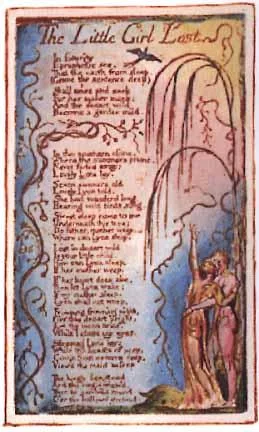 The Little Girl Lost
In futurity
I prophetic see,
That the earth from sleep,
(Grave the sentence deep)
Shall arise and seek
For her maker meek:
And the desart wild
Become a garden mild.
In the southern clime,
Where the summers prime,
Never fades away;
Lovely Lyca lay.
Seven summers old
Lovely Lyca told,
She had wanderd long,
Hearing wild birds song.
Sweet sleep come to me
Underneath this tree;
Do father, mother weep,
Where can Lyca sleep.
Lost in desart wild
Is your little child.
How can Lyca sleep,
If her mother weep.
If her heart does ake,
Then let Lyca wake;
If my mother sleep,
Lyca shall not weep.
Frowning frowning night,
O'er this desart bright,
Let thy moon arise,
While I close my eyes.
Sleeping Lyca lay;
While the beasts of prey,
Come from caverns deep,
View'd the maid asleep
The kingly lion stood
And the virgin view'd,
Then he gambold round
O'er the hallowd ground